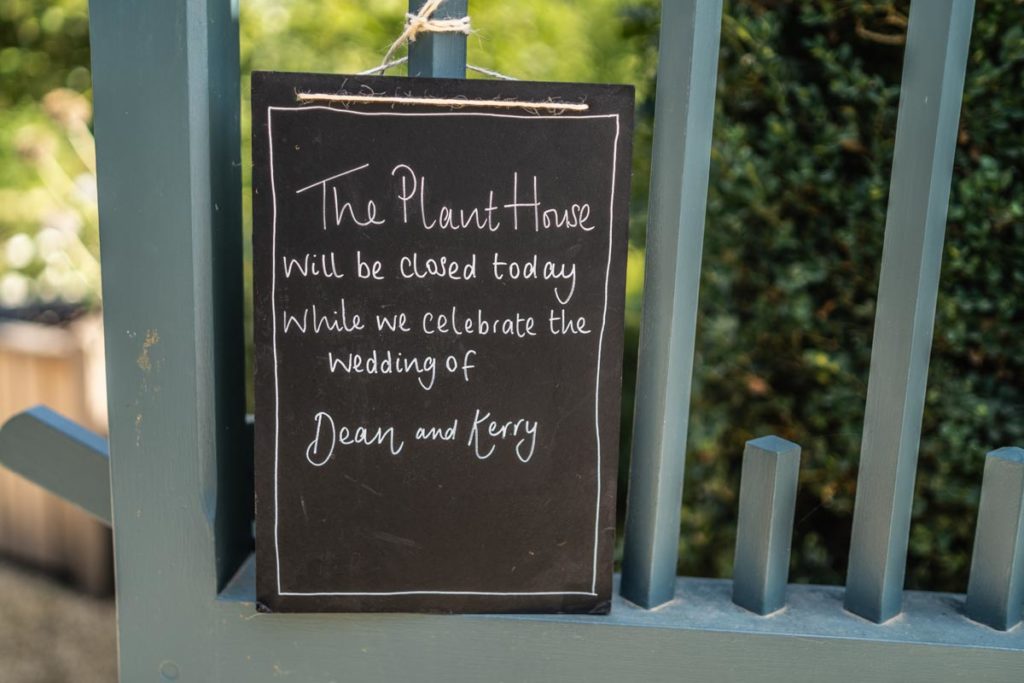 The Plant House
will be closed today
while we celebrate the
wedding of
Dean and Kerry